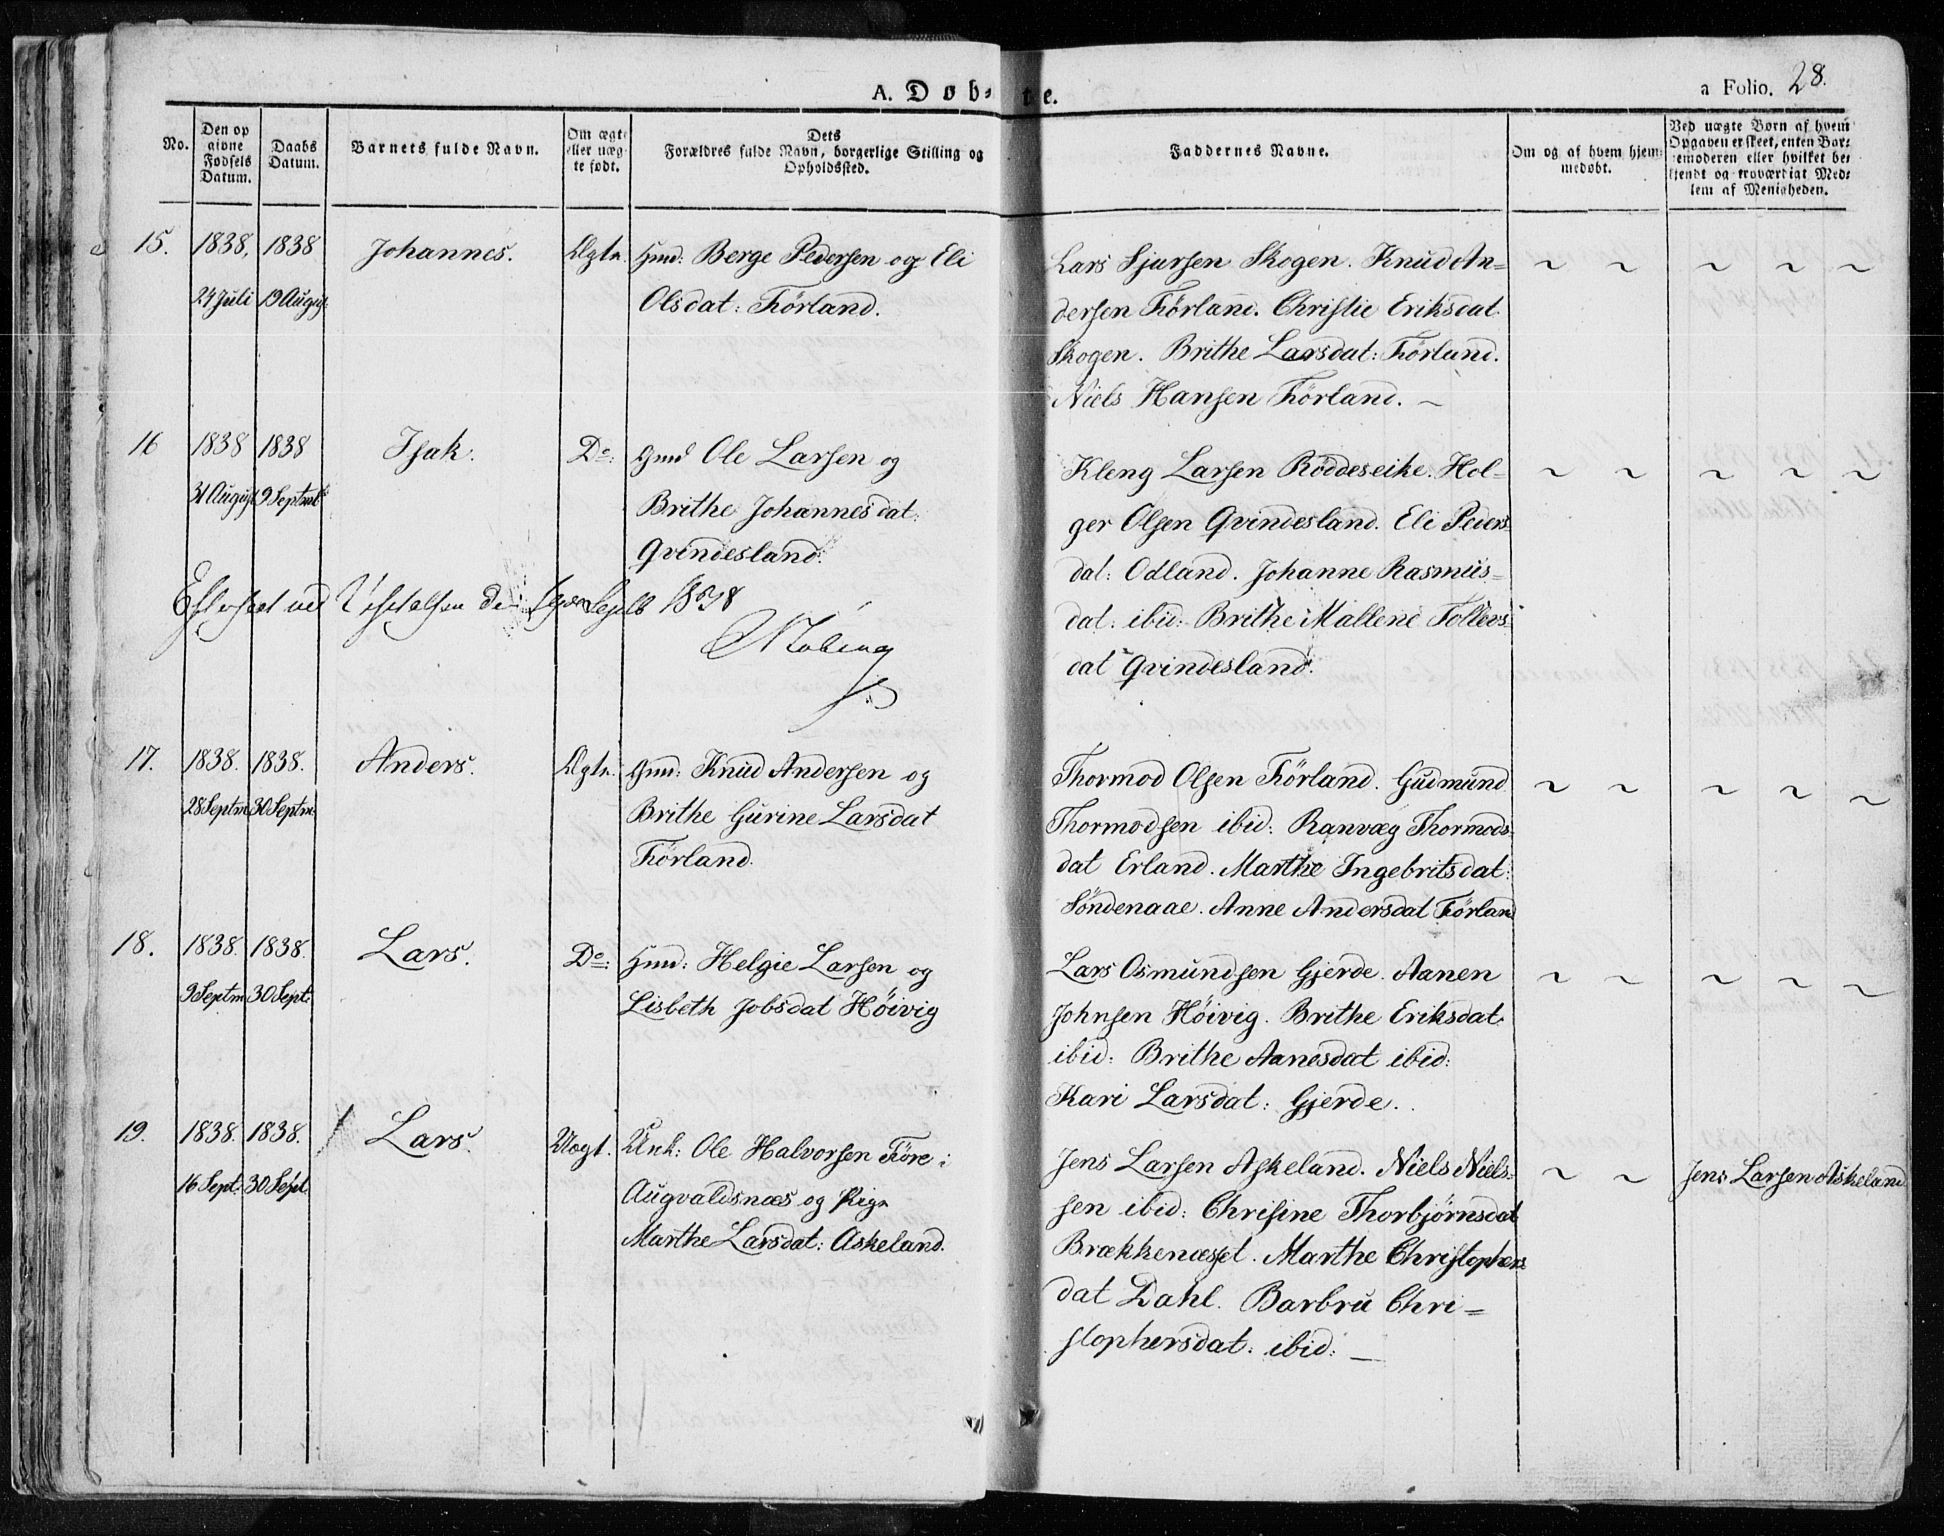 A. Døbte.
a Folio. 28.
No.
Den opgivne Fødsels Datum.
Daabs Datum.
Barnets fulde Navn.
Om ægte eller uægte født.
Dets Forældres fulde Navn, borgerlige Stilling og Opholdssted.
Faddernes Navne.
Om og af hvem hjemmedøbt.
Ved uægte Børn af hvem Opgaven er skeet, enten Barnemoderen eller hvilket bekjendt og troværdigt Medlem af Menigheden.
15. 1838, 1838 Johannes. Ægte. Gmd: Berge Pedersen og Eli
24 Juli 19 August Olsdat: Förland.
Lars Sjursen Skogen. Knud An=
dersen Förland. Christie Eriksdat.
Skogen. Brithe Larsdat: Förland.
Niels Hansen Förland. ~
16 1838 1838 Isak. Do: Gmd Ole Larsen og
31 August 9 Septmb Brithe Johannesdat:
Qvindesland.
Kleng Larsen Röddeseike. Hol=
ger Olsen Qvindesland. Eli Peders
dat: Odland. Johanne Rasmus=
dat: ibid: Brithe Mallene Tollevs:
dat Qvindesland.
Efterseet ved Visitatsen den Septb 1838
17. 1838. 1838. Anders. Ægte. Gmd: Knud Andersen og
28 Septm 30 Septm. Brithe Gurine Larsdat
Förland.
Thormod Olsen Förland. Gudmund
Thormodsen ibid: Ranvæg Thormods=
dat Erland. Marthe Ingebritsdat:
Söndenaae. Anne Andersdat Förland
18. 1838. 1838. Lars. Do: Gmd: Helgie Larsen og
9 Septm 30 Sept. Lisbeth Jobsdat Höivig
Lars Osmundsen Gjerde. Aanen
Johnsen Höivig. Brithe Eriksdat
ibid: Brithe Aanesdat ibid:
Kari Larsdat: Gjerde.
19. 1838. 1838. Lars. Uægt. Unk: Ole Halvorsen Före i
16 Sept. 30 Sept. Augvaldsnæs og Pige
Marthe Larsdat: Askeland.
Jens Larsen Askeland. Niels Niels=
sen ibid: Chrisine Thorbjørnsdat
Brækkenæsset. Marthe Christophers
dat Dahl. Barbru Chri=
stophersdat: ibid: —
Jens Larsen Askeland